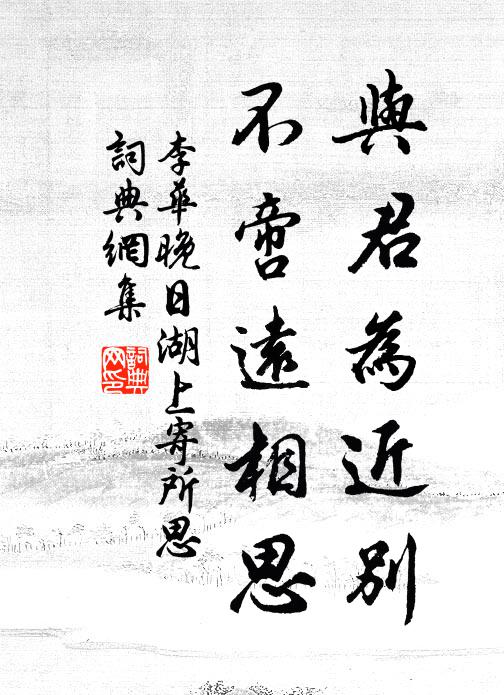 與君為近別
不啻遠相思
李華晚日湖上寄所思
詞典網集
詞典网印